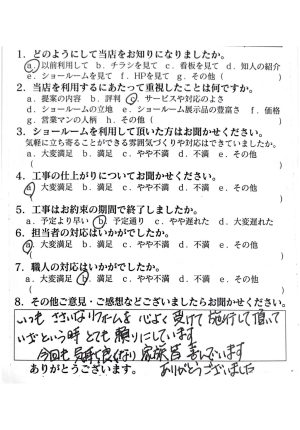 1. どのようにして当店をお知りになりましたか。
a. 以前利用して b. チラシを見て c. 看板を見て d. 知人の紹介
e. ショールームを見て f. HPを見て g. その他 ( )
2. 当店を利用するにあたって重視したことは何ですか。
a. 提案の内容 b. 評判 c. サービスや対応のよさ
d. ショールームの立地 e. ショールーム展示品の豊富さ f. 価格
g. 営業マンの人柄 h. その他 ( )
3. ショールームを利用して頂いた方はお聞かせください。
気軽に立ち寄ることができる雰囲気づくりや対応はできていましたか。
a. 大変満足 b. 満足 c. やや不満 d. 不満 e. その他
( )
4. 工事の仕上がりについてお聞かせください。
a. 大変満足 b. 満足 c. やや不満 d. 不満 e. その他
( )
5. 工事はお約束の期間で終了しましたか。
a. 予定より早い b. 予定通り c. やや遅れた d. 大変遅れた
6. 担当者の対応はいかがでしたか。
a. 大変満足 b. 満足 c. やや不満 d. 不満 e. その他
( )
7. 職人の対応はいかがでしたか。
a. 大変満足 b. 満足 c. やや不満 d. 不満 e. その他
( )
8. その他ご意見・ご感想などございましたらお聞かせください。
いつも ささいなリフォームを 心よく 受けて 施行して頂いて
いざという時 とても 頼りにしています
今回も 気持良くなり 家族皆 喜んでいます
ありがとうございます。 ありがとうございました